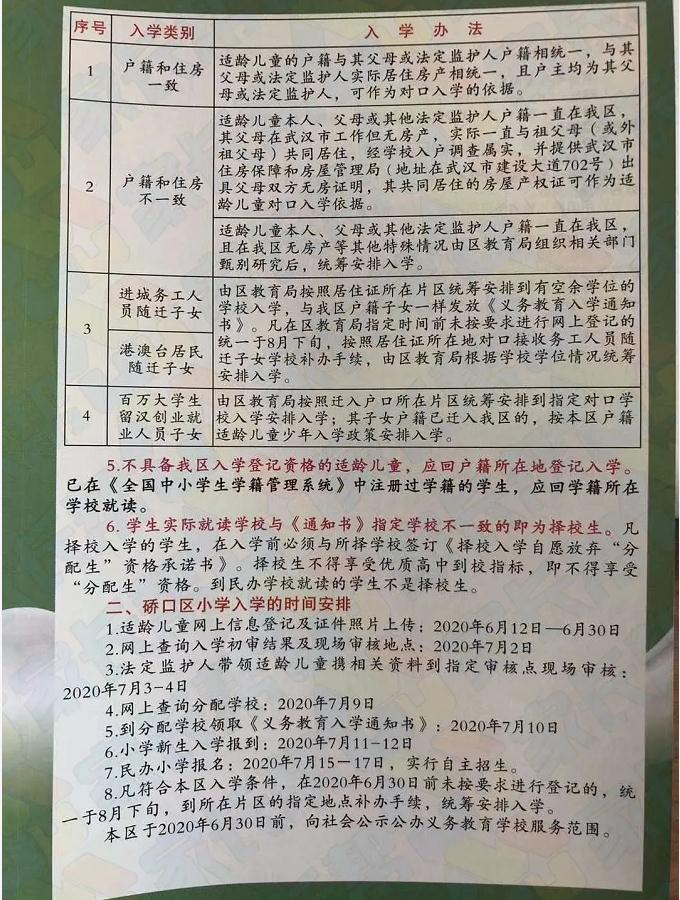 序号 入学类别 入 学 办 法
1 户籍和住房
一致
适龄儿童的户籍与其父母或法定监护人户籍相统一，与其
父母或法定监护人实际居住房产相统一，且户主均为其父
母或法定监护人，可作为对口入学的依据。
2 户籍和住房
不一致
适龄儿童本人、父母或其他法定监护人户籍一直在我区，
其父母在武汉市工作但无房产，实际一直与祖父母（或外
祖父母）共同居住，经学校入户调查属实，并提供武汉市
住房保障和房屋管理局（地址在武汉市建设大道702号）出
具父母双方无房证明，其共同居住的房屋产权证可作为适
龄儿童对口入学依据。
适龄儿童本人、父母或其他法定监护人户籍一直在我区，
且在我区无房产等其他特殊情况由区教育局组织相关部门
甄别研究后，统筹安排入学。
3 进城务工人
员随迁子女
港澳台居民
随迁子女
由区教育局按照居住证所在片区统筹安排到有空余学位的
学校入学，与我区户籍子女一样发放《义务教育入学通知
书》。凡在区教育局指定时间前未按要求进行网上登记的
统一于8月下旬，按照居住证所在地对口接收务工人员随
迁子女学校补办手续，由区教育局根据学校学位情况统筹
安排入学。
4 百万大学生
留汉创业就
业人员子女
由区教育局按照迁入户口所在片区统筹安排到指定对口学
校入学安排入学；其子女户籍已迁入我区的，按本区户籍
适龄儿童少年入学政策安排入学。
5.不具备我区入学登记资格的适龄儿童，应回户籍所在地登记入学。
已在《全国中小学生学籍管理系统》中注册过学籍的学生，应回学籍所在
学校就读。
6. 学生实际就读学校与《通知书》指定学校不一致的即为择校生。凡
择校入学的学生，在入学前必须与所择学校签订《择校入学自愿放弃“分
配生”资格承诺书》。择校生不得享受优质高中到校指标，即不得享受
“分配生”资格。到民办学校就读的学生不是择校生。
二、硚口区小学入学的时间安排
1.适龄儿童网上信息登记及证件照片上传：2020年6月12日—6月30日
2.网上查询入学初审结果及现场审核地点：2020年7月2日
3.法定监护人带领适龄儿童携相关资料到指定审核点现场审核：
2020年7月3-4日
4.网上查询分配学校：2020年7月9日
5.到分配学校领取《义务教育入学通知书》：2020年7月10日
6.小学新生入学报到：2020年7月11-12日
7.民办小学报名：2020年7月15－17日，实行自主招生。
8.凡符合本区入学条件，在2020年6月30日前未按要求进行登记的，统
一于8月下旬，到所在片区的指定地点补办手续，统筹安排入学。
本区于2020年6月30日前，向社会公示公办义务教育学校服务范围。